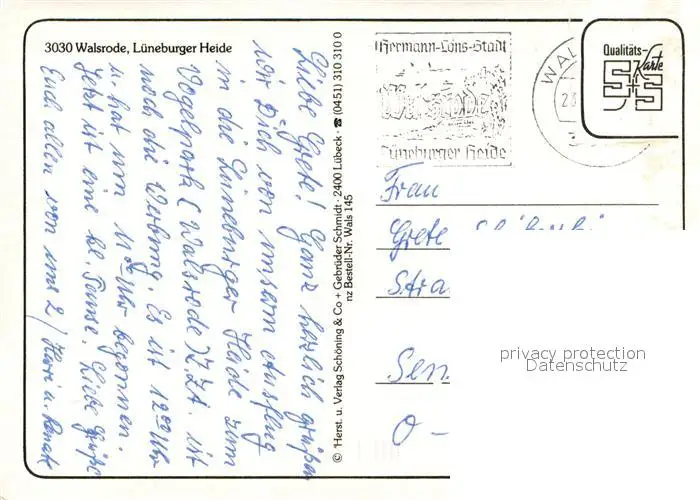 3030 Walsrode, Lüneburger Heide
Liebe Grete! Ganz herzlich grüßen
wir Dich von unserm Ausflug
in die Lüneburger Heide zum
Vogelpark (Walsrode) Z.Zt. ist
noch die Werbung. Es ist 12⁰⁰ Uhr
u. hat um 11⁰⁰ Uhr begonnen.
Jetzt ist eine kl. Pause. Liebe Grüße
Euch allen von uns 2/ u. Renate
© Herst. u. Verlag Schöning & Co + Gebrüder Schmidt · 2400 Lübeck · ☎ (0451) 310 310 0
nz Bestell-Nr. Wals 145
Hermann-Löns-Stadt
Walsrode
Lüneburger Heide
WAL
Qualitäts-
Karte
S+S
Frau
Grete
Stra
Sen
O -
privacy protection
Datenschutz